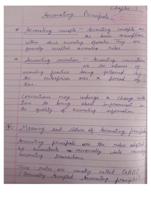 Chapter-1
Accounting Principles
* Accounting concepts - Accounting concepts are
the basic assumptions
within which accounting operates. They are
generally accepted accounting rules.
* Accounting convention - Accounting convention
are the
accounting practices being followed by
the enterprises over a period of
time.
Conventions may undergo a change with
time to bring about improvement in
the quality of accounting information.
* Meaning and nature of Accounting principle
Accounting principles are the rules adopted
by accountants universally while recording
Accounting transactions.
These rules are usually called GAAP
(Generally Accepted Accounting Principles)